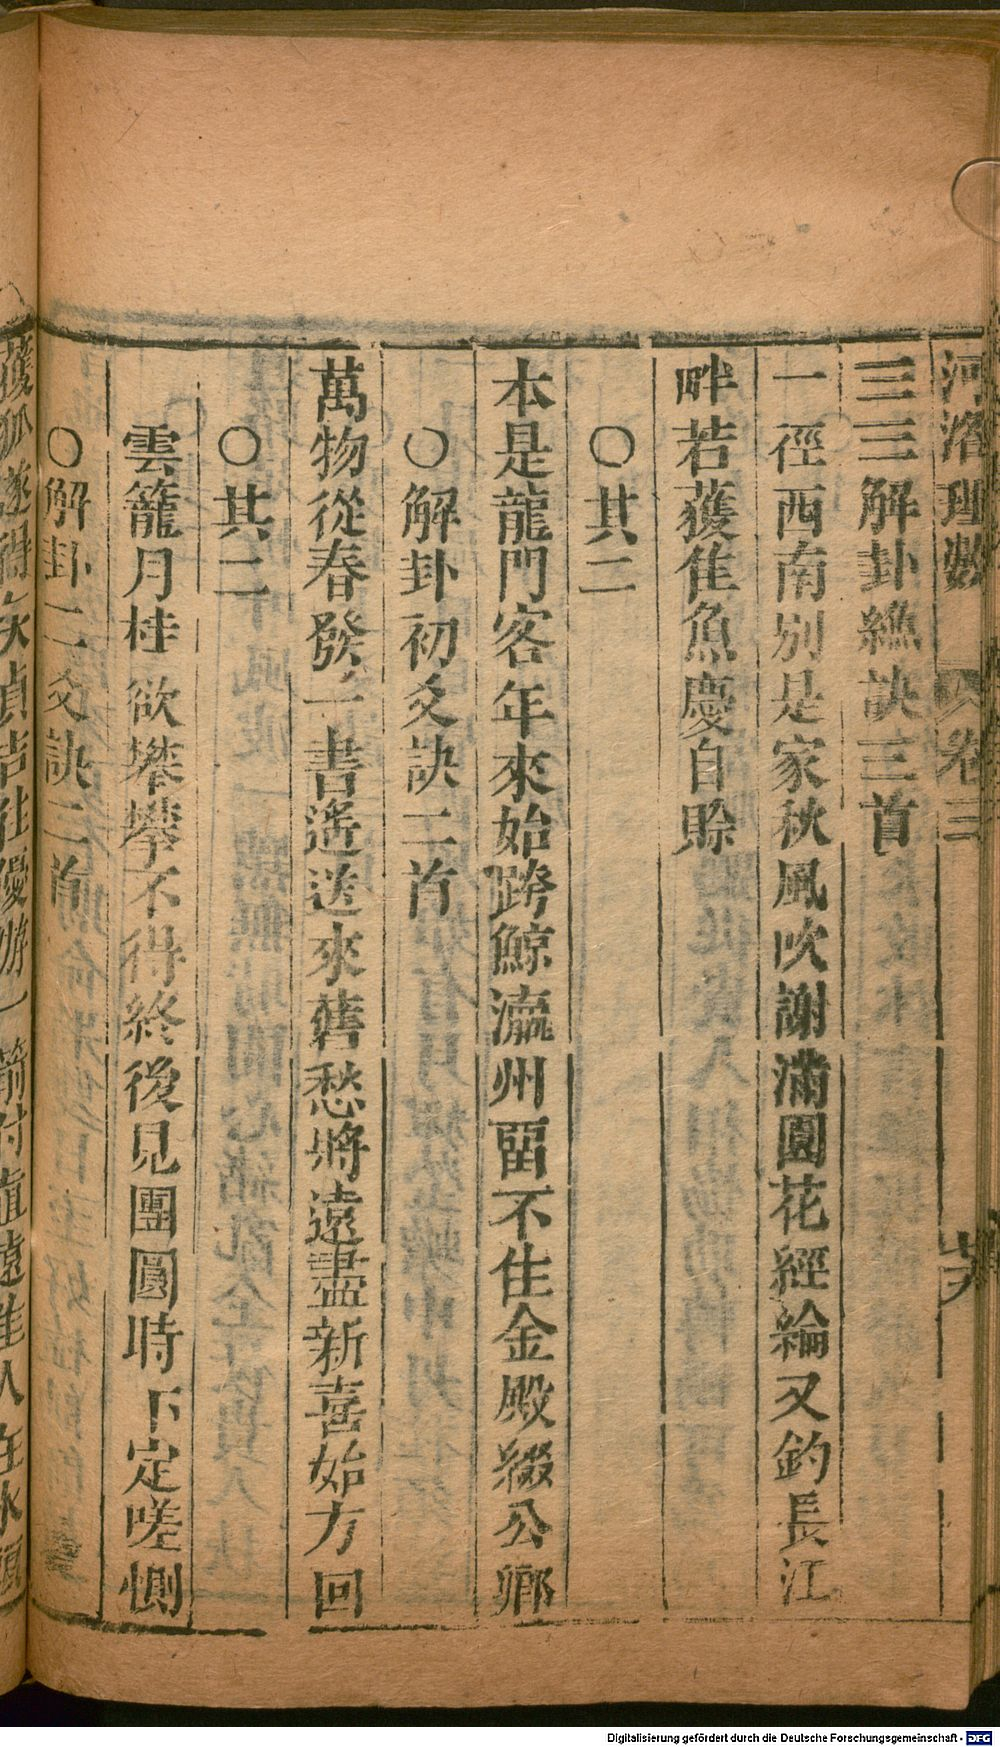 河洛理數 卷三
三三解卦繇訣三首
一徑西南別是家秋風吹謝滿園花經綸又釣長江
畔若獲隹魚慶自賒
○其二
本是龍門客年來始跨鯨瀛州畱不住金殿綴公鄉
○解卦初爻訣二首
萬物從春發一書遙送來舊愁將遠盡新喜始方回
○其二
雲籠月桂欲攀攀不得終後見團圓時下定嗟惻
○解卦二爻訣二首
獲狐遂得矢貞吉往優游一箭付直遠佳人在水頭
Digitalisierung gefördert durch die Deutsche Forschungsgemeinschaft - DFG